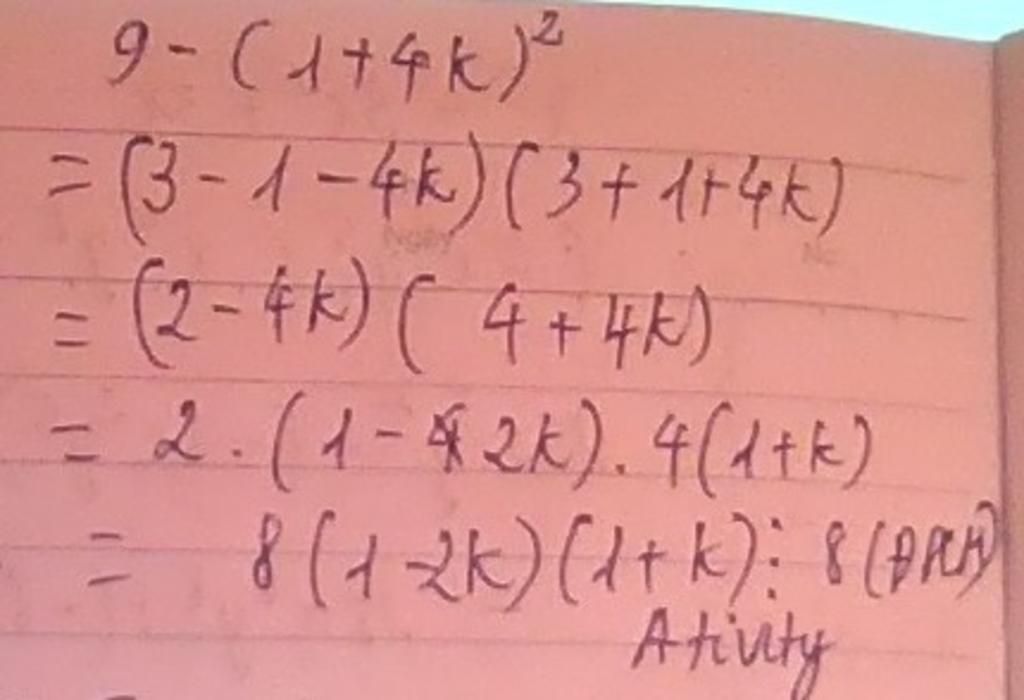 9 - (1+4k)²
= (3 - 1 - 4k)(3 + 1 + 4k)
= (2 - 4k)( 4 + 4k)
= 2 . (1 - 2k) . 4(1+k)
= 8(1-2k)(1+k) ⋮ 8 (ĐPCM)
Ativity